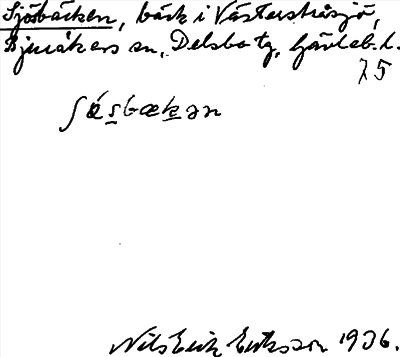 Sjösbäcken, bäck i Västerstråsjö,
Bjuråkers sn, Delsbo tg, Gävleb. l.
75
Nils Erik Eriksson 1936.